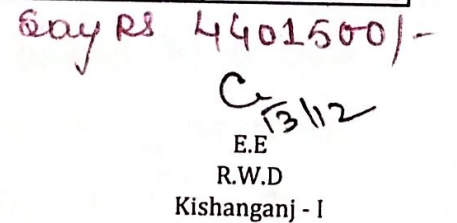 Say RS 4401500/-
13/12
E.E
R.W.D
Kishanganj - I